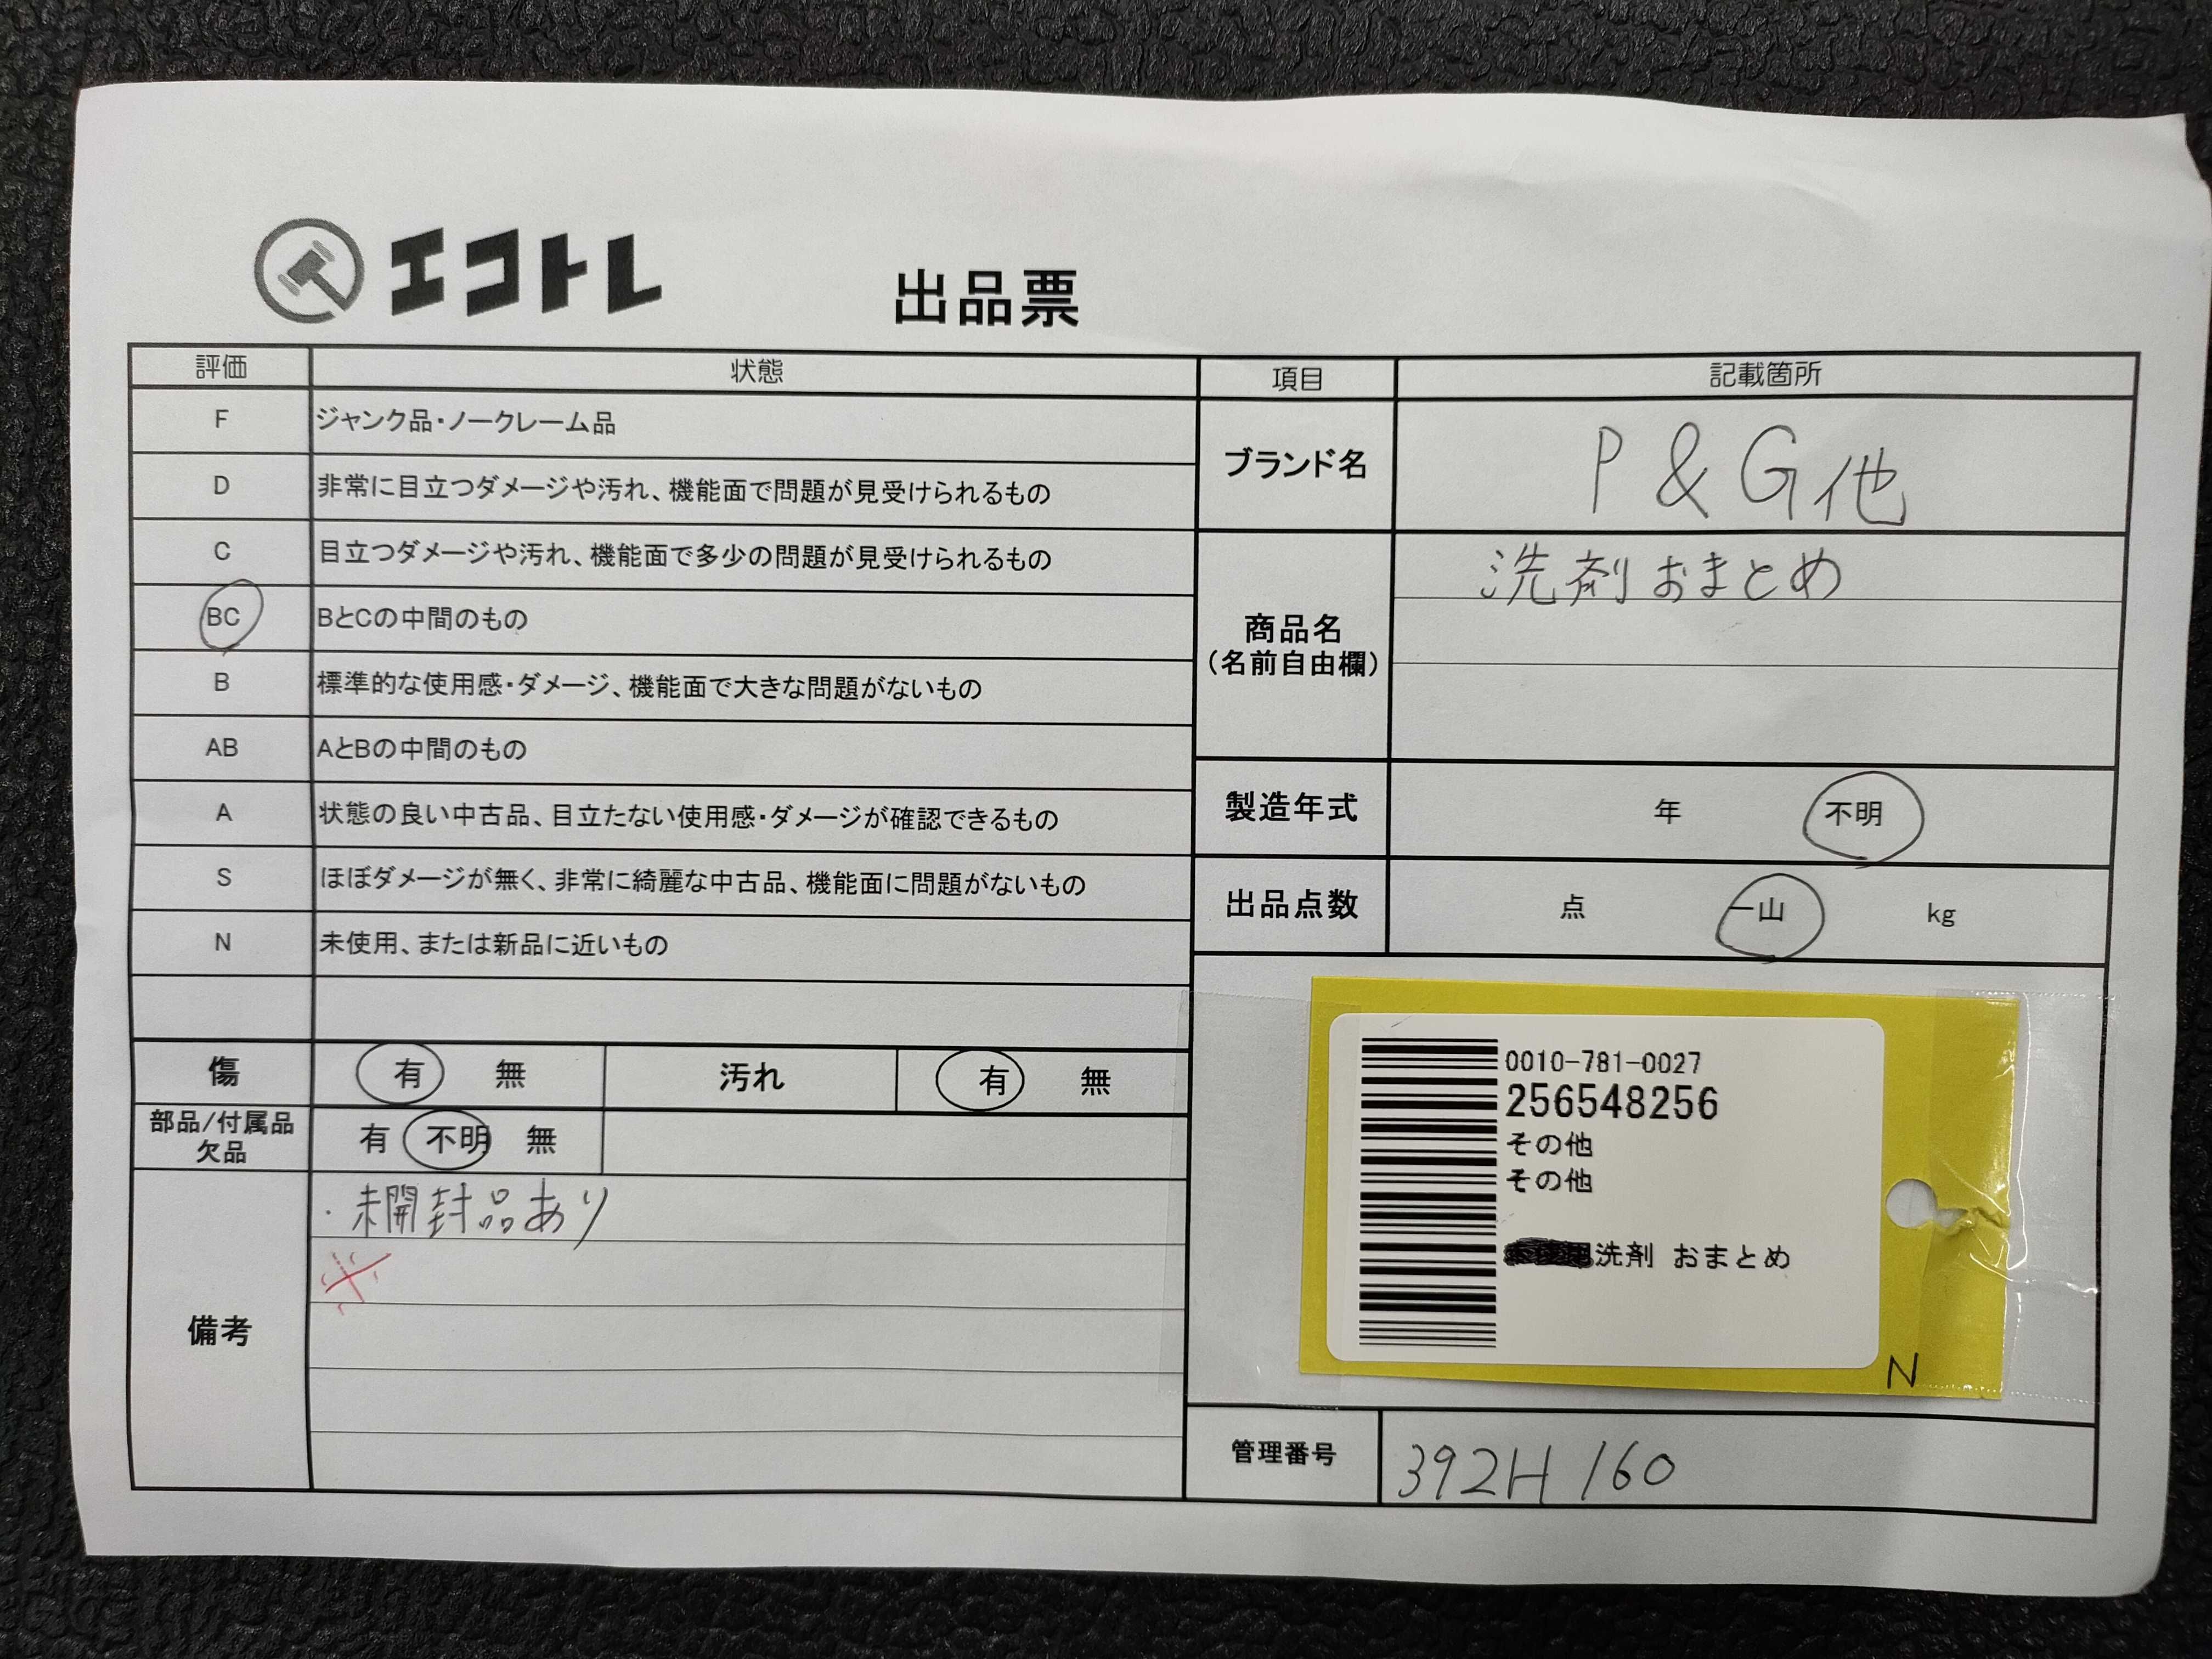 エコトレ
出品票
評価 状態
F ジャンク品・ノークレーム品
D 非常に目立つダメージや汚れ、機能面で問題が見受けられるもの
C 目立つダメージや汚れ、機能面で多少の問題が見受けられるもの
BC BとCの中間のもの
B 標準的な使用感・ダメージ、機能面で大きな問題がないもの
AB AとBの中間のもの
A 状態の良い中古品、目立たない使用感・ダメージが確認できるもの
S ほぼダメージが無く、非常に綺麗な中古品、機能面に問題がないもの
N 未使用、または新品に近いもの
傷 有 無 汚れ 有 無
部品/付属品
欠品
有 不明 無
備考
・未開封品あり
項目 記載箇所
ブランド名 P&G他
商品名
(名前自由欄)
洗剤おまとめ
製造年式 年 不明
出品点数 点 一山 kg
0010-781-0027
256548256
その他
その他
洗剤 おまとめ
N
管理番号 392H160